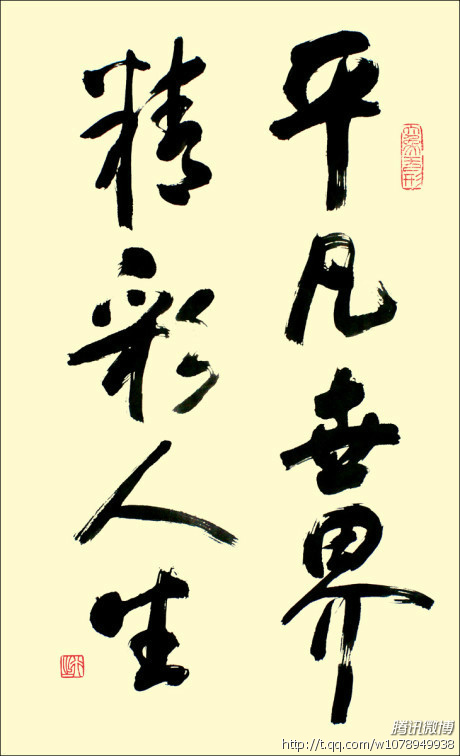 平凡世界
精彩人生
腾讯微博
http://t.qq.com/w1078949938